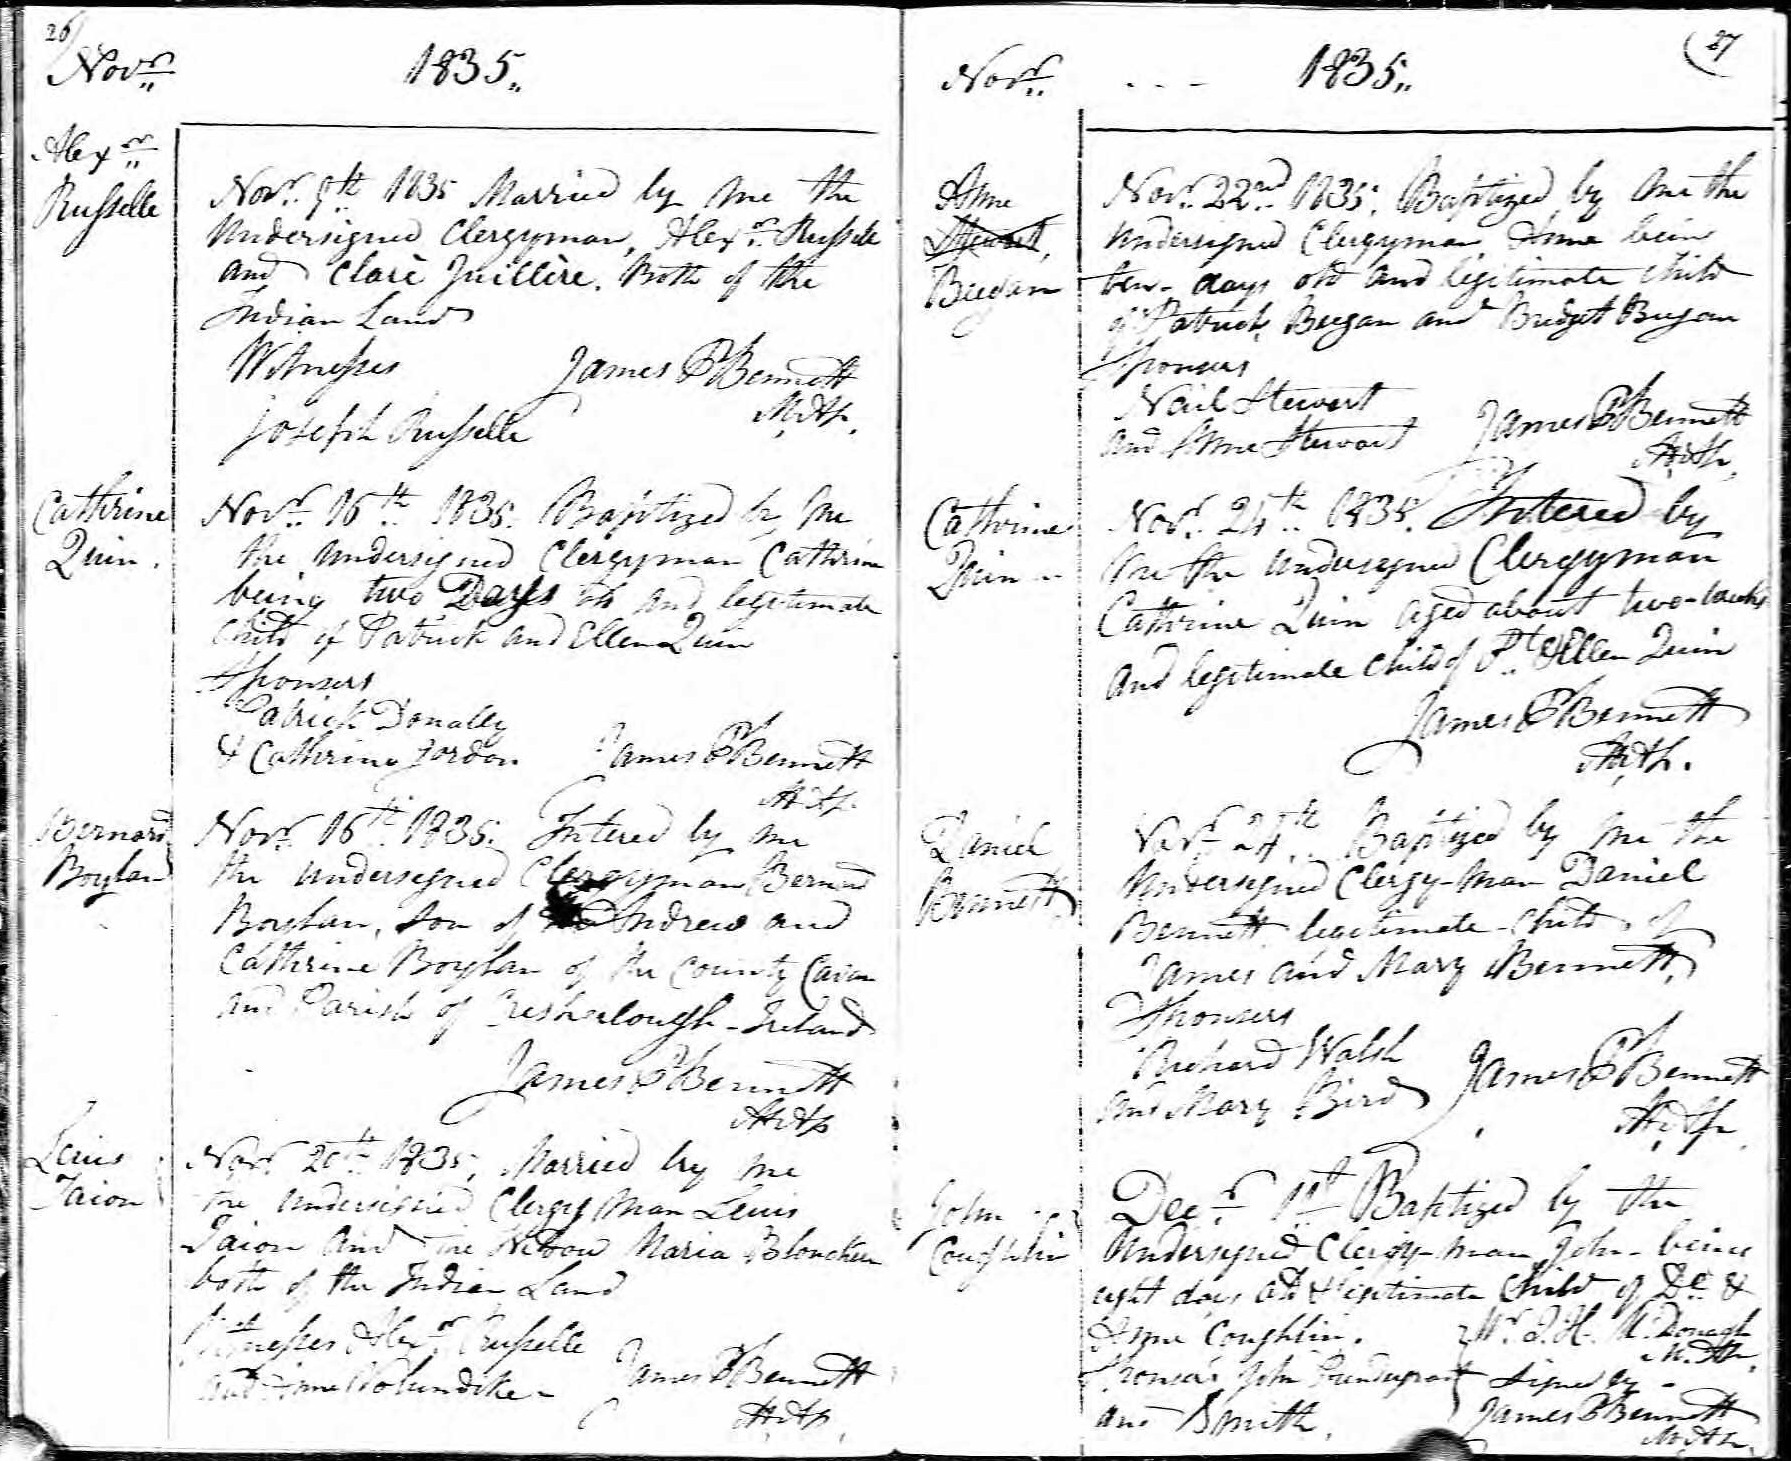 26
Novr. 1835.
Alexr.
Russelle
Novr. 9th 1835 Married by me the
Undersigned Clergyman, Alexr. Russelle
and Clarè Juillère. Both of the
Indian Land
Witnesses James P Bennett
M.Ap.
Joseph Russelle
Cathrine
Quin.
Novr. 16th 1835. Baptized by me
the undersigned Clergyman Cathrine
being two Days old and legitimate
Child of Patrick and Ellen Quin
Sponsers
Patrick Donally
& Cathrine Jordon James P Bennett
M.Ap.
Bernard
Boylan
Novr. 16th 1835. Intered by me
the undersigned Clergyman Bernard
Boylan, Son of Andrew and
Cathrine Boylan of the County Cavan
and Parish of Ireland
James P Bennett
M.Ap
Leuis
Taion
Novr. 20th 1835, Married by me
the undersigned Clergy Man Leuis
Taion and the Widow Maria
both of the Indian Land
Witnesses Alexr. Russelle
and Anne James P Bennett
M.Ap.
Novr. - - - 1835. 27
Anne
Stewart,
Beegan
Novr. 22nd 1835. Baptized by me the
undersigned Clergyman Anne being
ten- days old and legitimate Child
of Patrick Beegan and Bridget Beegan
Sponsers
Nail Stewart
and Anne Stewart James P Bennett
M.Ap.
Cathrine
Quin
Novr. 24th 1835. Intered by
me the undersigned Clergyman
Cathrine Quin aged about two-weeks
and legitimate Child of Pt. & Ellen Quin
James P Bennett
M.Ap.
Daniel
Bennett
Novr. 24th Baptized by me the
Undersigned Clergy-Man Daniel
Bennett legitimate-Child of
James and Mary Bennett.
Sponsers
Richard Walsh
and Mary Bird James P Bennett
M.Ap.
John
Coughlin
Decr. 1st Baptized by the
Undersigned Clergy-man John-being
eight days old & legitimate Child of Dl. &
Anne Coughlin. J.H. McDonagh
M.Ap.
Sponsers John signed by -
and Smith. James P Bennett
M.Ap.